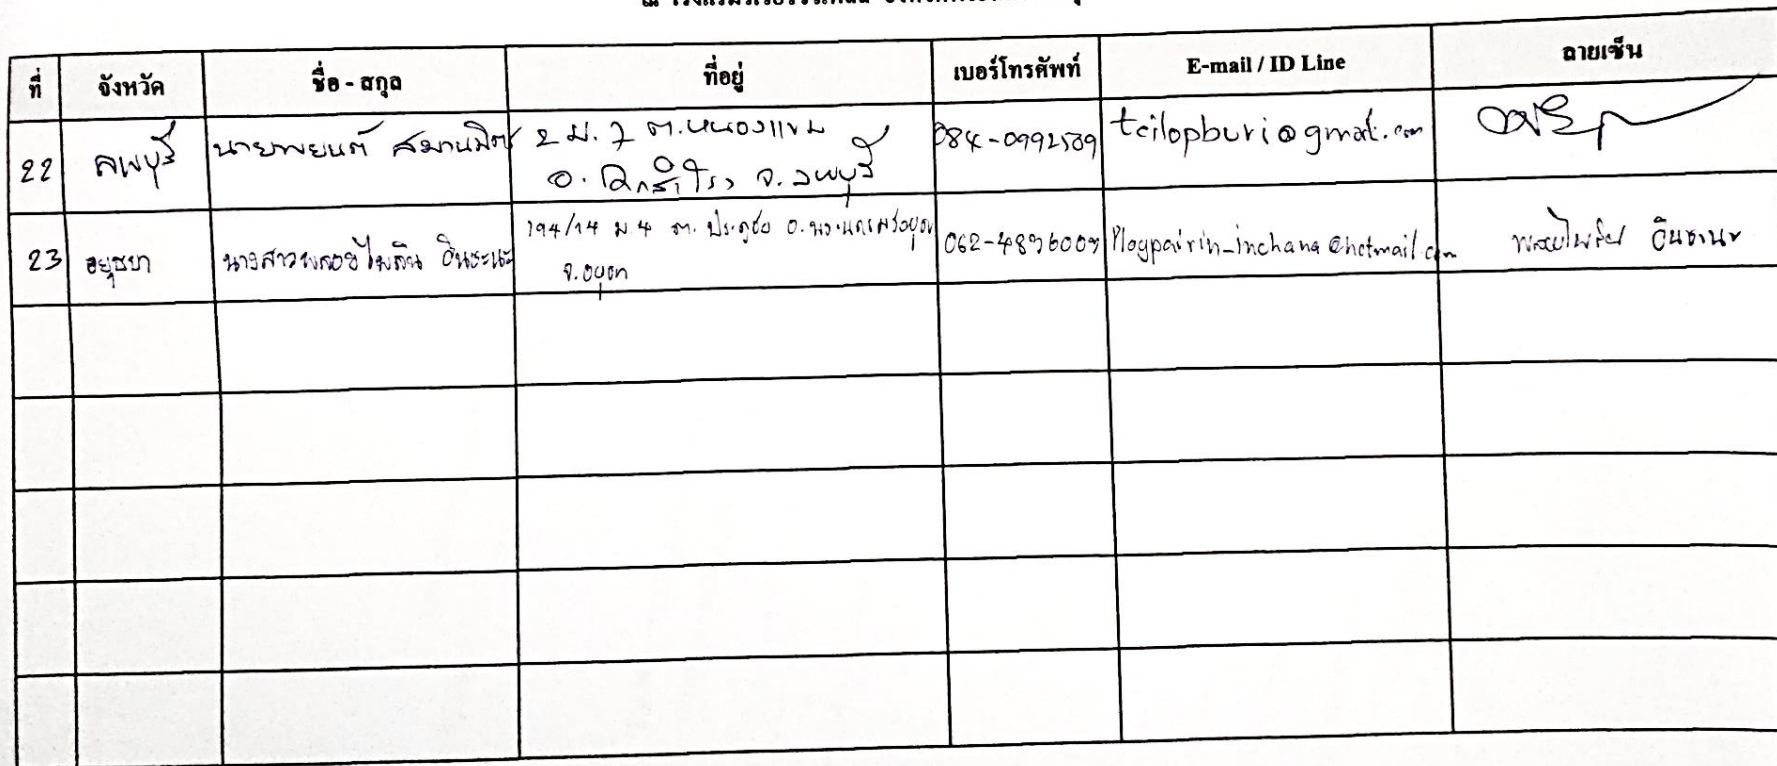 ที่ จังหวัด ชื่อ - สกุล ที่อยู่ เบอร์โทรศัพท์ E-mail / ID Line ลายเซ็น
22 ลพบุรี นายพยนต์ สมานมิตร 2 ม. 7 ต.หนองแขม 084-0992589 tcilopburi@gmail.com
อ. โคกสำโรง จ. ลพบุรี
23 อยุธยา นางสาวพลอยไพริน อินชะนะ 194/14 ม.4 ต. ประตูชัย อ.พระนครศรีอยุธยา 062-4896009 Ploypairin_inchana@hotmail.com พลอยไพริน อินชะนะ
จ.อยุธยา